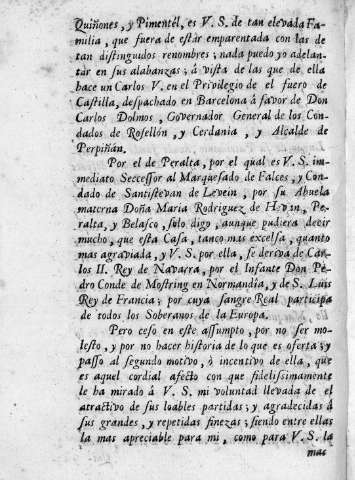 Quiñones, y Pimentèl, es V. S. de tan elevada Fa-
milia, que fuera de estàr emparentada con las de
tan distinguidos renombres; nada puedo yo adelan-
tar en sus alabanzas; à vista de las que de ella
hace un Carlos V. en el Privilegio de el fuero de
Castilla, despachado en Barcelona à favor de Don
Carlos Dolmos, Governador General de los Con-
dados de Rosellòn, y Cerdania, y Alcalde de
Perpiñàn.
Por el de Peralta, por el qual es V. S. im-
mediato Seccessor al Marquesado de Falces, y Con-
dado de Santistevan de Levein, por su Abuela
materna Doña Maria Rodriguez de Pe-
ralta, y Belasco, solo digo, aunque pudiera decir
mucho, que esta Casa, tanto mas excelsa, quanto
mas agraviada, y V. S. por ella, se deriva de Car-
los II. Rey de Navarra, por el Infante Don Pe-
dro Conde de Mostring en Normandìa, y de S. Luis
Rey de Francia; por cuya sangre Real participa
de todos los Soberanos de la Europa.
Pero ceso en este assumpto, por no ser mo-
lesto, y por no hacer historia de lo que es oferta; y
passo al segundo motivo, ò incentivo de ella, que
es aquel cordial afecto con que fidelissimamente
le ha mirado à V. S. mi voluntad llevada de el
atractivo de sus loables partidas; y agradecidas à
sus grandes, y repetidas finezas; siendo entre ellas
la mas apreciable para mi, como para V. S. la
mas